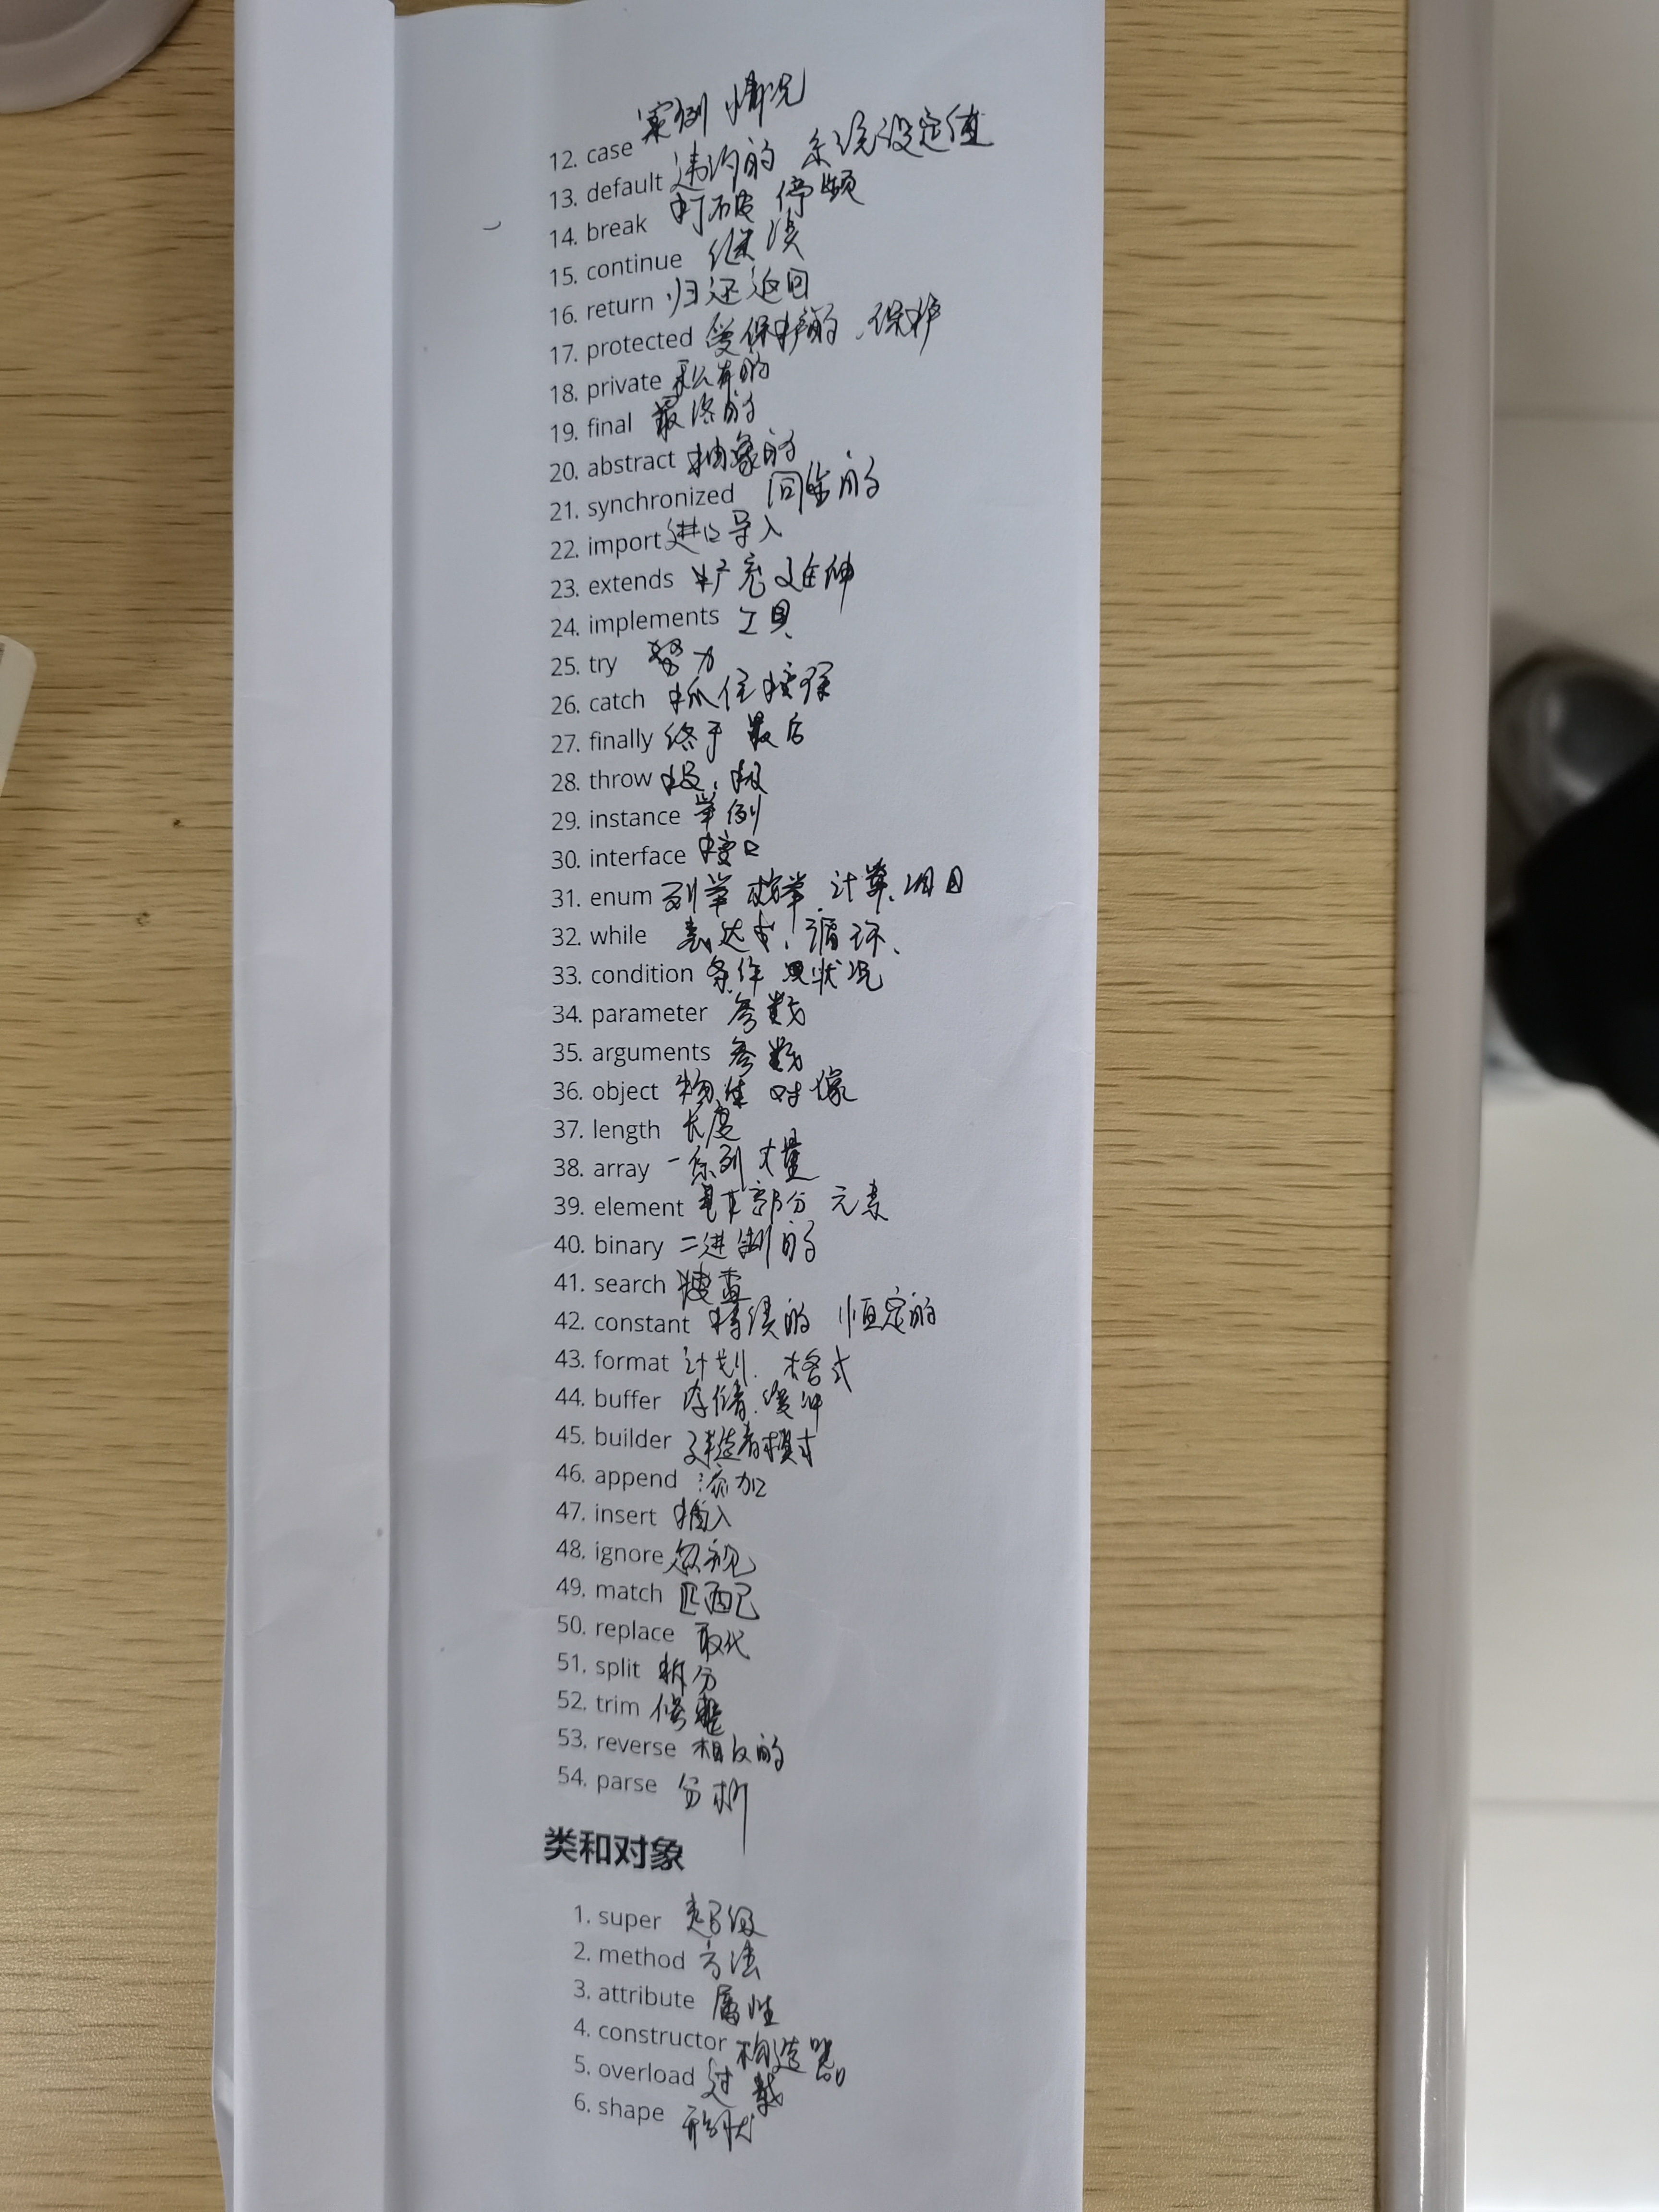 12. case 案例 情况
13. default 违约的 系统设定值
14. break 打破 停顿
15. continue 继续
16. return 归还 返回
17. protected 受保护的、保护
18. private 私有的
19. final 最终的
20. abstract 抽象的
21. synchronized 同步的
22. import 进口 导入
23. extends 扩充 延伸
24. implements 工具
25. try 努力
26. catch 抓住 接球
27. finally 终于 最后
28. throw 投、
29. instance 举例
30. interface 接口
31. enum 列举 枚举、计算、项目
32. while 表达式、循环、
33. condition 条件 状况
34. parameter 参数
35. arguments 参数
36. object 物体 对像
37. length 长度
38. array 一系列 大量
39. element 基本部分 元素
40. binary 二进制的
41. search 搜查
42. constant 持续的 恒定的
43. format 计划、格式
44. buffer 存储、缓冲
45. builder 建造者模式
46. append 添加
47. insert 插入
48. ignore 忽视
49. match 匹配
50. replace 取代
51. split 拆分
52. trim 修整
53. reverse 相反的
54. parse 分析
类和对象
1. super 超级
2. method 方法
3. attribute 属性
4. constructor 构造器
5. overload 过载
6. shape 形状